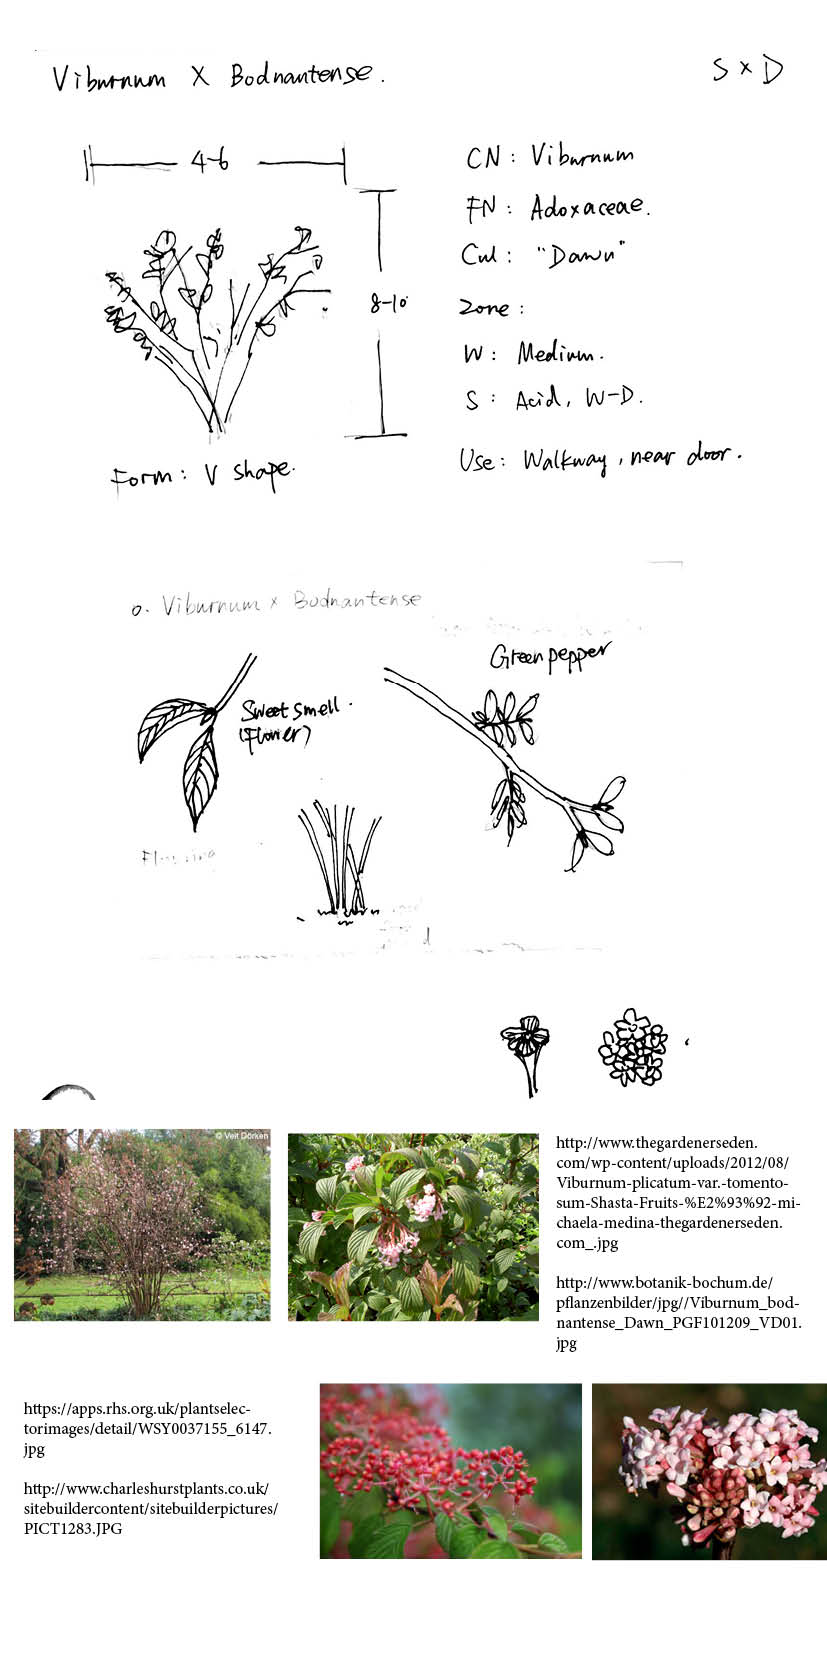 Viburnum X Bodnantense.
S x D
4-6
8-10
Form: V shape.
CN: Viburnum
FN: Adoxaceae.
Cul: "Dawn"
Zone:
W: Medium.
S: Acid, W-D.
Use: Walkway, near door.
o. Viburnum x Bodnantense
Green pepper
Sweet smell.
(Flower)
© Veit Dörken
http://www.thegardenerseden.
com/wp-content/uploads/2012/08/
Viburnum-plicatum-var.-tomento-
sum-Shasta-Fruits-%E2%93%92-mi-
chaela-medina-thegardenerseden.
com_.jpg
http://www.botanik-bochum.de/
pflanzenbilder/jpg//Viburnum_bod-
nantense_Dawn_PGF101209_VD01.
jpg
https://apps.rhs.org.uk/plantselec-
torimages/detail/WSY0037155_6147.
jpg
http://www.charleshurstplants.co.uk/
sitebuildercontent/sitebuilderpictures/
PICT1283.JPG